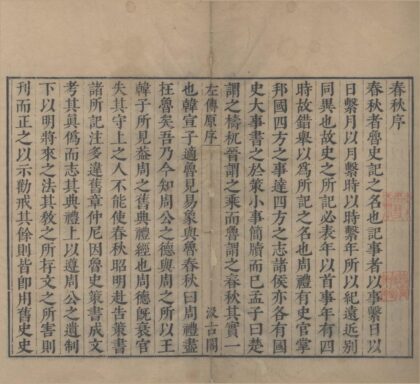 春秋序
春秋者魯史記之名也記事者以事繫日以
日繫月以月繫時以時繫年所以紀遠近別
同異也故史之所記必表年以首事年有四
時故錯舉以爲所記之名也周禮有史官掌
邦國四方之事達四方之志諸侯亦各有國
史大事書之於策小事簡牘而已孟子曰楚
謂之檮杌晉謂之乘而魯謂之春秋其實一
左傳原序 汲古閣
也韓宣子適魯見易象與魯春秋曰周禮盡
在魯矣吾乃今知周公之德與周之所以王
韓子所見蓋周之舊典禮經也周德旣衰官
失其守上之人不能使春秋昭明赴告策書
諸所記注多違舊章仲尼因魯史策書成文
考其眞僞而志其典禮上以遵周公之遺制
下以明將來之法其敎之所存文之所害則
刊而正之以示勸戒其餘則皆卽用舊史史